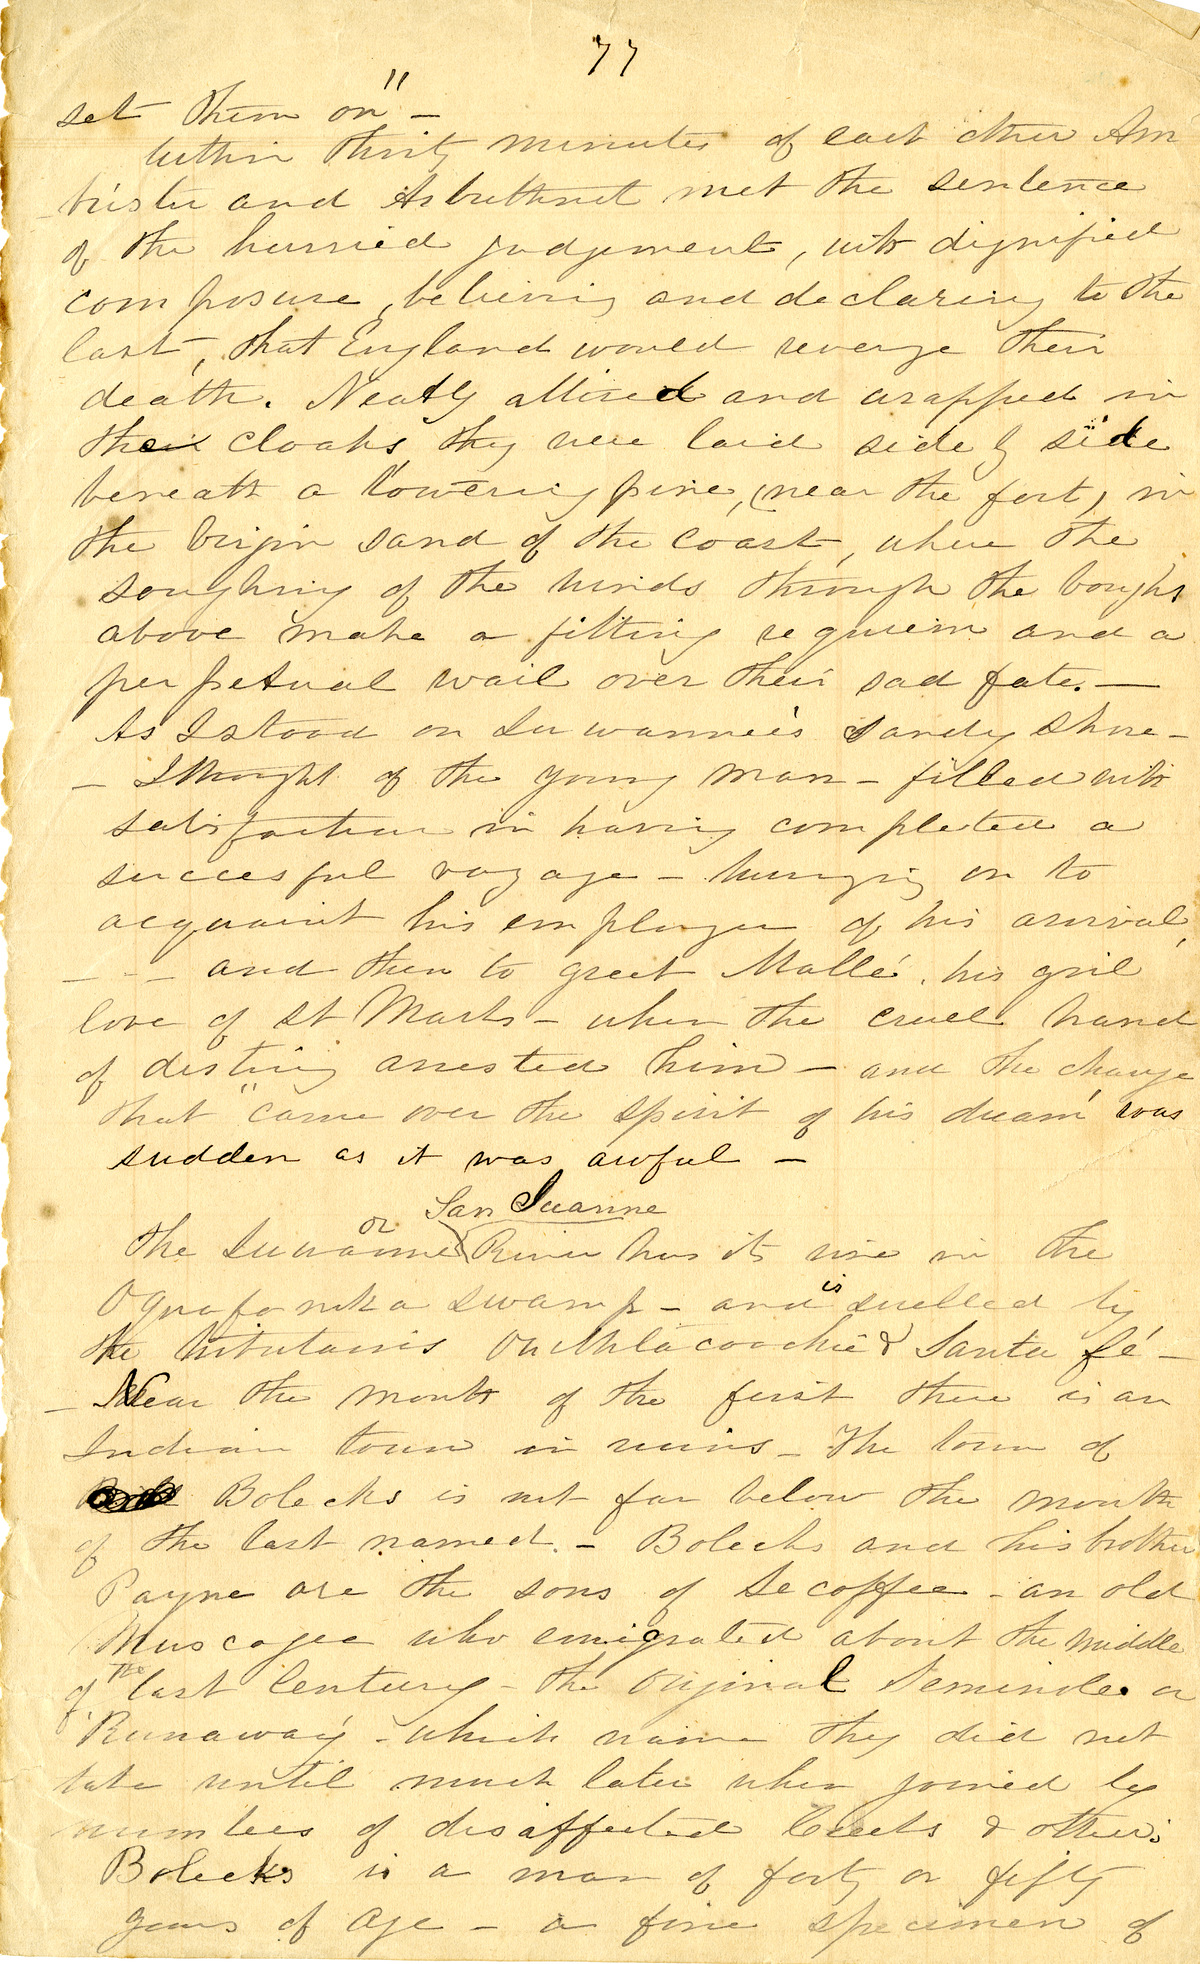 77
set them on" —
Within thirty minutes of each other Am
brister and Arbuthnot met the sentence
of the hurried judgement, with dignified
composure, believing and declaring to the
last, that England would revenge their
death. Neatly attired and wrapped in
their cloaks they were laid side by side
beneath a "towering pine, (near the fort) in
the virgin sand of the coast, where the
soughing of the winds through the boughs
above make a fitting requiem and a
perpetual wail over their sad fate. —
As I stood on Suwannee's sandy shore —
— I thought of the young man — filled with
satisfaction in having completed a
succesful voyage — hurrying on to
acquaint his employer of his arrival,
— - — and then to greet Mallé, his girl
love of St Marks — when the cruel hand
of destiny arrested him — and the change
that "came over the spirit of his dream" was
sudden as it was awful —
or San Juanne
The Suwannee River has its rise in the
Oquafanoka swamp — and is swelled by
the tributaries Outhlacoochie & Santa fé —
— Near the mouth of the first there is an
Indian town in ruins — The town of
Bolecks is not far below the mouth
of the last named. — Bolecks and his brother
Payne are the sons of Secoffee — an old
Muscogee who emigrated about the middle
of the last Century — the original Seminole or
'Runaway' - which name they did not
take until much later when joined by
numbers of disaffected Creeks & others.
Bolecks is a man of forty or fifty
years of age — a fine specimen of